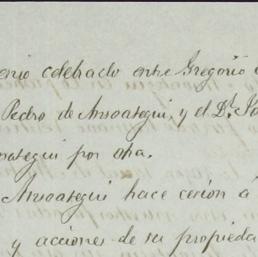 enio celebrado entre Gregorio
Pedro de Anzoategui, y el Dr.
por otra.
Anzoategui hace cesion á
y acciones de su propieda